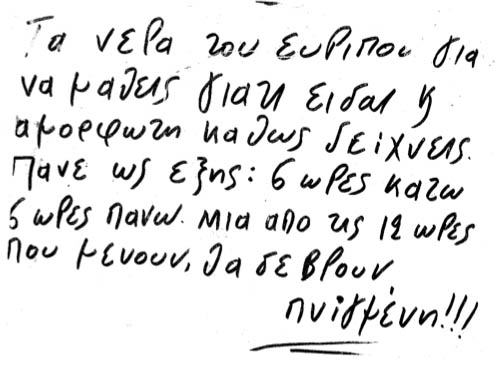 Τα νερα του ευριπου για
να μαθεις γιατι εισαι κ
αμορφωτη καθως δειχνεις.
Πανε ως εξης: 6 ωρες κατω
6 ωρες πανω. μια απο τις 12 ωρες
που μενουν, θα σε βρουν
πνιγμένη!!!